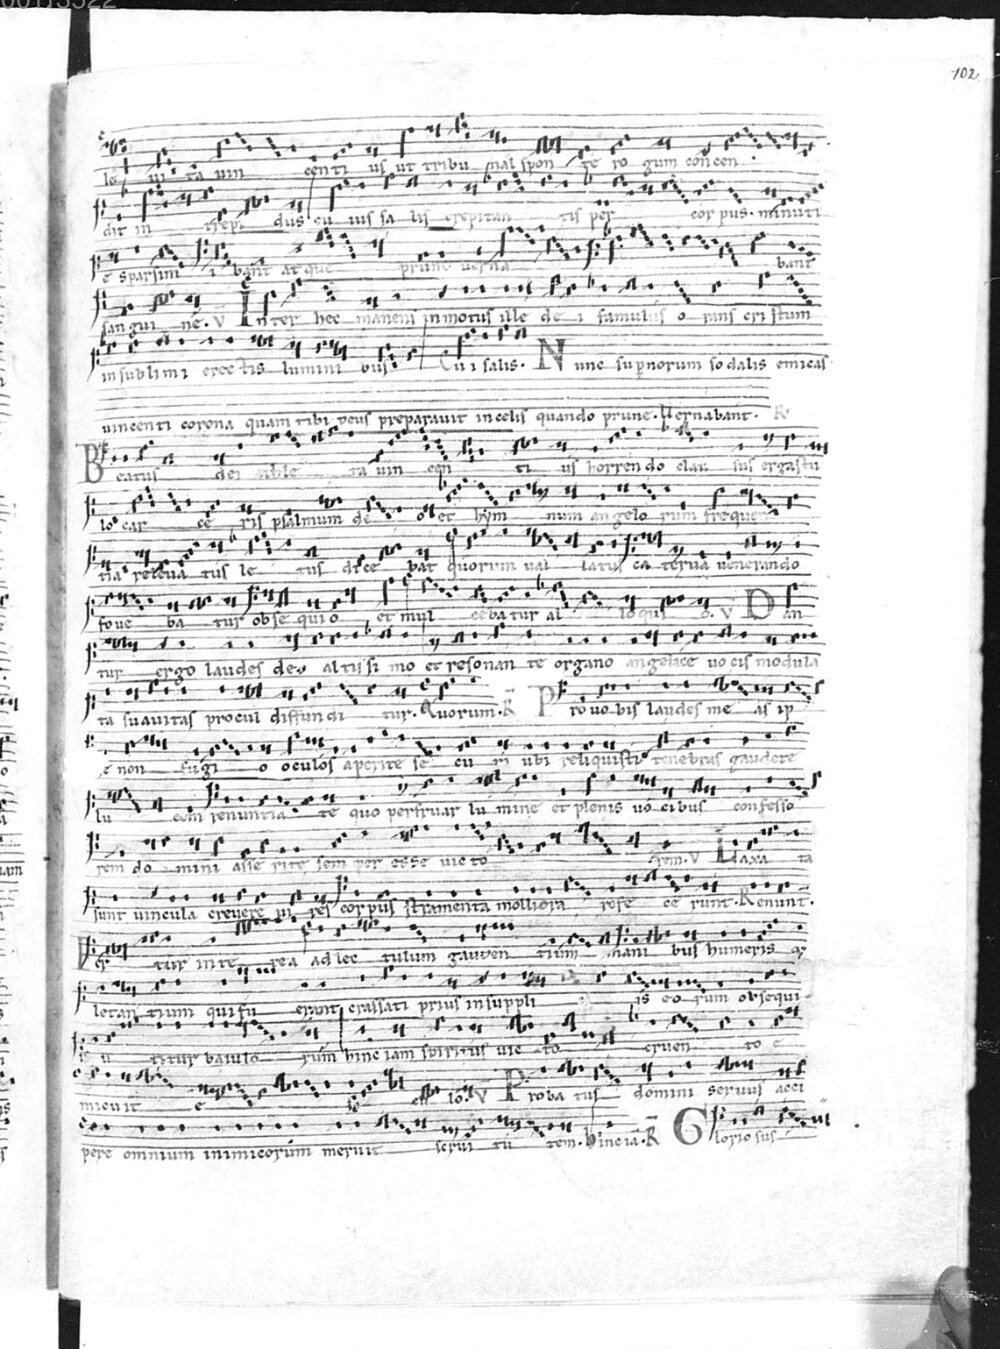 102
le ui ta uin centi us ut tribu nal spon te ro gum concen
dit in trepi dus cu ius sa lis crepitan tis per corpus minuti
e sparsim i bant atque prune uerna bant
sangui ne. V Inter hec manens inmotus ille de i famulus o rans cristum
in sublimi erectis lumini bus. Cui salis. Nunc supnorum sodalis emicas
uincenti corona quam tibi deus preparauit in celis quando prune. Uernabant. R
Beatus dei athle ta uin cen ti us horrendo clau sus ergastu
lo car ce ris psalmum de o et hym num angelo rum frequen
tia releua tus le tus dice bat quorum ual latus ca terua uenerando
foue ba tur obse quio et mul cebatur al loqui o. V Dan
tur ergo laudes deo altissi mo et resonan te organo angelice uocis modula
ta suauitas procul diffundi tur. Quorum. R Pro uobis laudes me as ip
e non fugi o oculos aperite se cu ri ubi reliquisti tenebras gaudete
lu cem renuntia te quo perfruar lu mine et plenis uo cibus confesso
rem do mini asse rite sem per esse uicto rem. V Laxa ta
sunt uincula creuere pi res corpus stramenta molliora refe ce runt. Renunt.
Fer tur inte rea ad lec tulum gauden tium mani bus humeris q
letan tium qui fu erant crassati prius in suppli is eo rum obsequi
u titur baiulo rum hinc iam spiritus uic to cruen to e
micuit e lo. V Proba tus domini seruus acci
pere omnium inimicorum meruit serui tu tem. Hinc ia. R Glorio sus